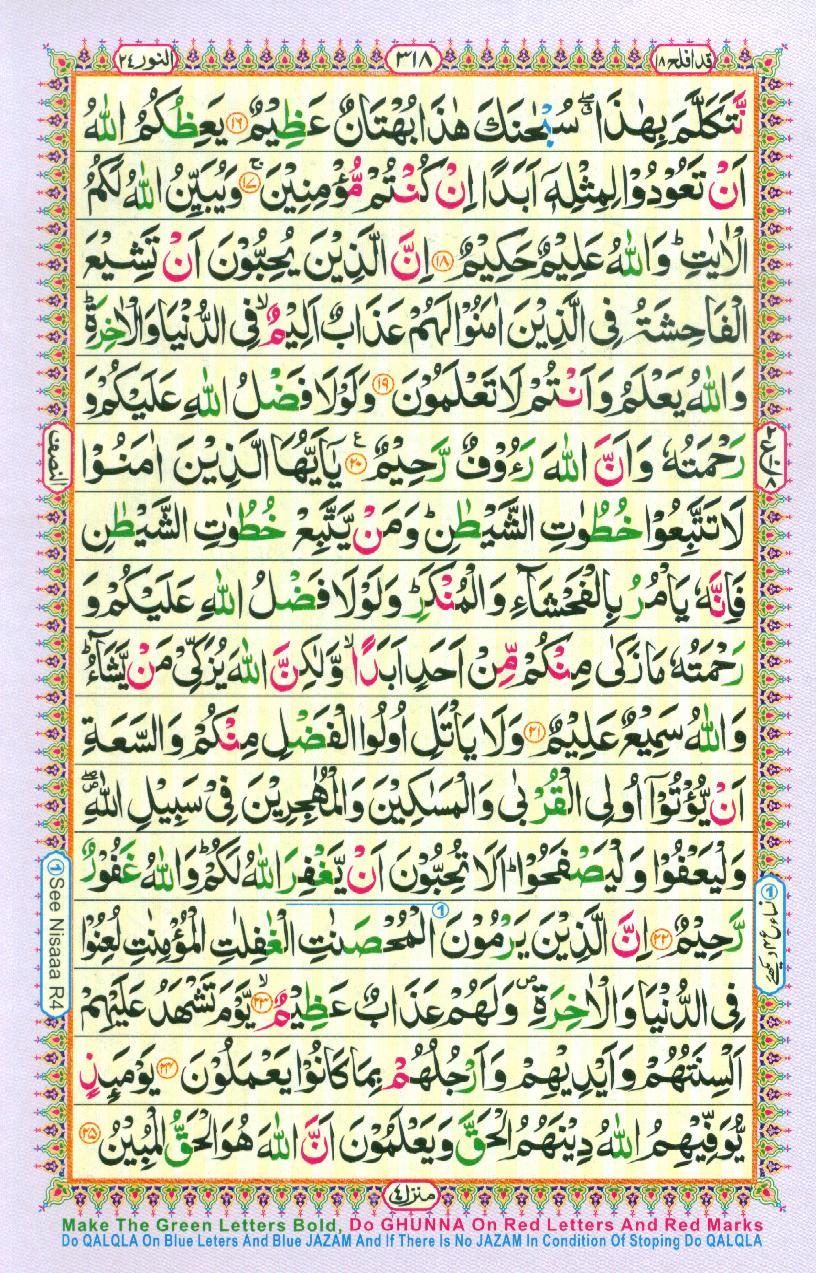 قد افلح ١٨
٣١٨
النور ٢٤
نَّتَكَلَّمَ بِهٰذَا ۖۗ سُبْحٰنَكَ هٰذَا بُهْتَانٌ عَظِيْمٌ ﴿١٦﴾ يَعِظُكُمُ اللّٰهُ
اَنْ تَعُوْدُوْا لِمِثْلِهٖۤ اَبَدًا اِنْ كُنْتُمْ مُّؤْمِنِيْنَ ۚ﴿١٧﴾ وَيُبَيِّنُ اللّٰهُ لَكُمُ
الْاٰيٰتِ ؕ وَاللّٰهُ عَلِيْمٌ حَكِيْمٌ ﴿١٨﴾ اِنَّ الَّذِيْنَ يُحِبُّوْنَ اَنْ تَشِيْعَ
الْفَاحِشَةُ فِى الَّذِيْنَ اٰمَنُوْا لَهُمْ عَذَابٌ اَلِيْمٌ ۙ فِى الدُّنْيَا وَالْاٰخِرَةِ ؕ
وَاللّٰهُ يَعْلَمُ وَاَنْتُمْ لَا تَعْلَمُوْنَ ﴿١٩﴾ وَلَوْلَا فَضْلُ اللّٰهِ عَلَيْكُمْ وَ
رَحْمَتُهٗ وَاَنَّ اللّٰهَ رَءُوْفٌ رَّحِيْمٌ ﴿٢٠﴾ ع يٰۤاَيُّهَا الَّذِيْنَ اٰمَنُوْا
لَا تَتَّبِعُوْا خُطُوٰتِ الشَّيْطٰنِ ؕ وَمَنْ يَّتَّبِعْ خُطُوٰتِ الشَّيْطٰنِ
فَاِنَّهٗ يَاْمُرُ بِالْفَحْشَآءِ وَالْمُنْكَرِ ؕ وَلَوْلَا فَضْلُ اللّٰهِ عَلَيْكُمْ وَ
رَحْمَتُهٗ مَا زَكٰى مِنْكُمْ مِّنْ اَحَدٍ اَبَدًا ۙ وَّلٰكِنَّ اللّٰهَ يُزَكِّىْ مَنْ يَّشَآءُ ؕ
وَاللّٰهُ سَمِيْعٌ عَلِيْمٌ ﴿٢١﴾ وَلَا يَاْتَلِ اُولُوا الْفَضْلِ مِنْكُمْ وَالسَّعَةِ
اَنْ يُّؤْتُوْۤا اُولِى الْقُرْبٰى وَالْمَسٰكِيْنَ وَالْمُهٰجِرِيْنَ فِىْ سَبِيْلِ اللّٰهِ ۖ
وَلْيَعْفُوْا وَلْيَصْفَحُوْا ؕ اَلَا تُحِبُّوْنَ اَنْ يَّغْفِرَ اللّٰهُ لَكُمْ ؕ وَاللّٰهُ غَفُوْرٌ
رَّحِيْمٌ ﴿٢٢﴾ اِنَّ الَّذِيْنَ يَرْمُوْنَ ① الْمُحْصَنٰتِ الْغٰفِلٰتِ الْمُؤْمِنٰتِ لُعِنُوْا
فِى الدُّنْيَا وَالْاٰخِرَةِ ۪ وَلَهُمْ عَذَابٌ عَظِيْمٌ ۙ﴿٢٣﴾ يَّوْمَ تَشْهَدُ عَلَيْهِمْ
اَلْسِنَتُهُمْ وَاَيْدِيْهِمْ وَاَرْجُلُهُمْ بِمَا كَانُوْا يَعْمَلُوْنَ ﴿٢٤﴾ يَوْمَئِذٍ
يُّوَفِّيْهِمُ اللّٰهُ دِيْنَهُمُ الْحَقَّ وَيَعْلَمُوْنَ اَنَّ اللّٰهَ هُوَ الْحَقُّ الْمُبِيْنُ ﴿٢٥﴾
النصف
① See Nisaaa R4
①
منزل ٤
Make The Green Letters Bold, Do GHUNNA On Red Letters And Red Marks
Do QALQLA On Blue Leters And Blue JAZAM And If There Is No JAZAM In Condition Of Stoping Do QALQLA